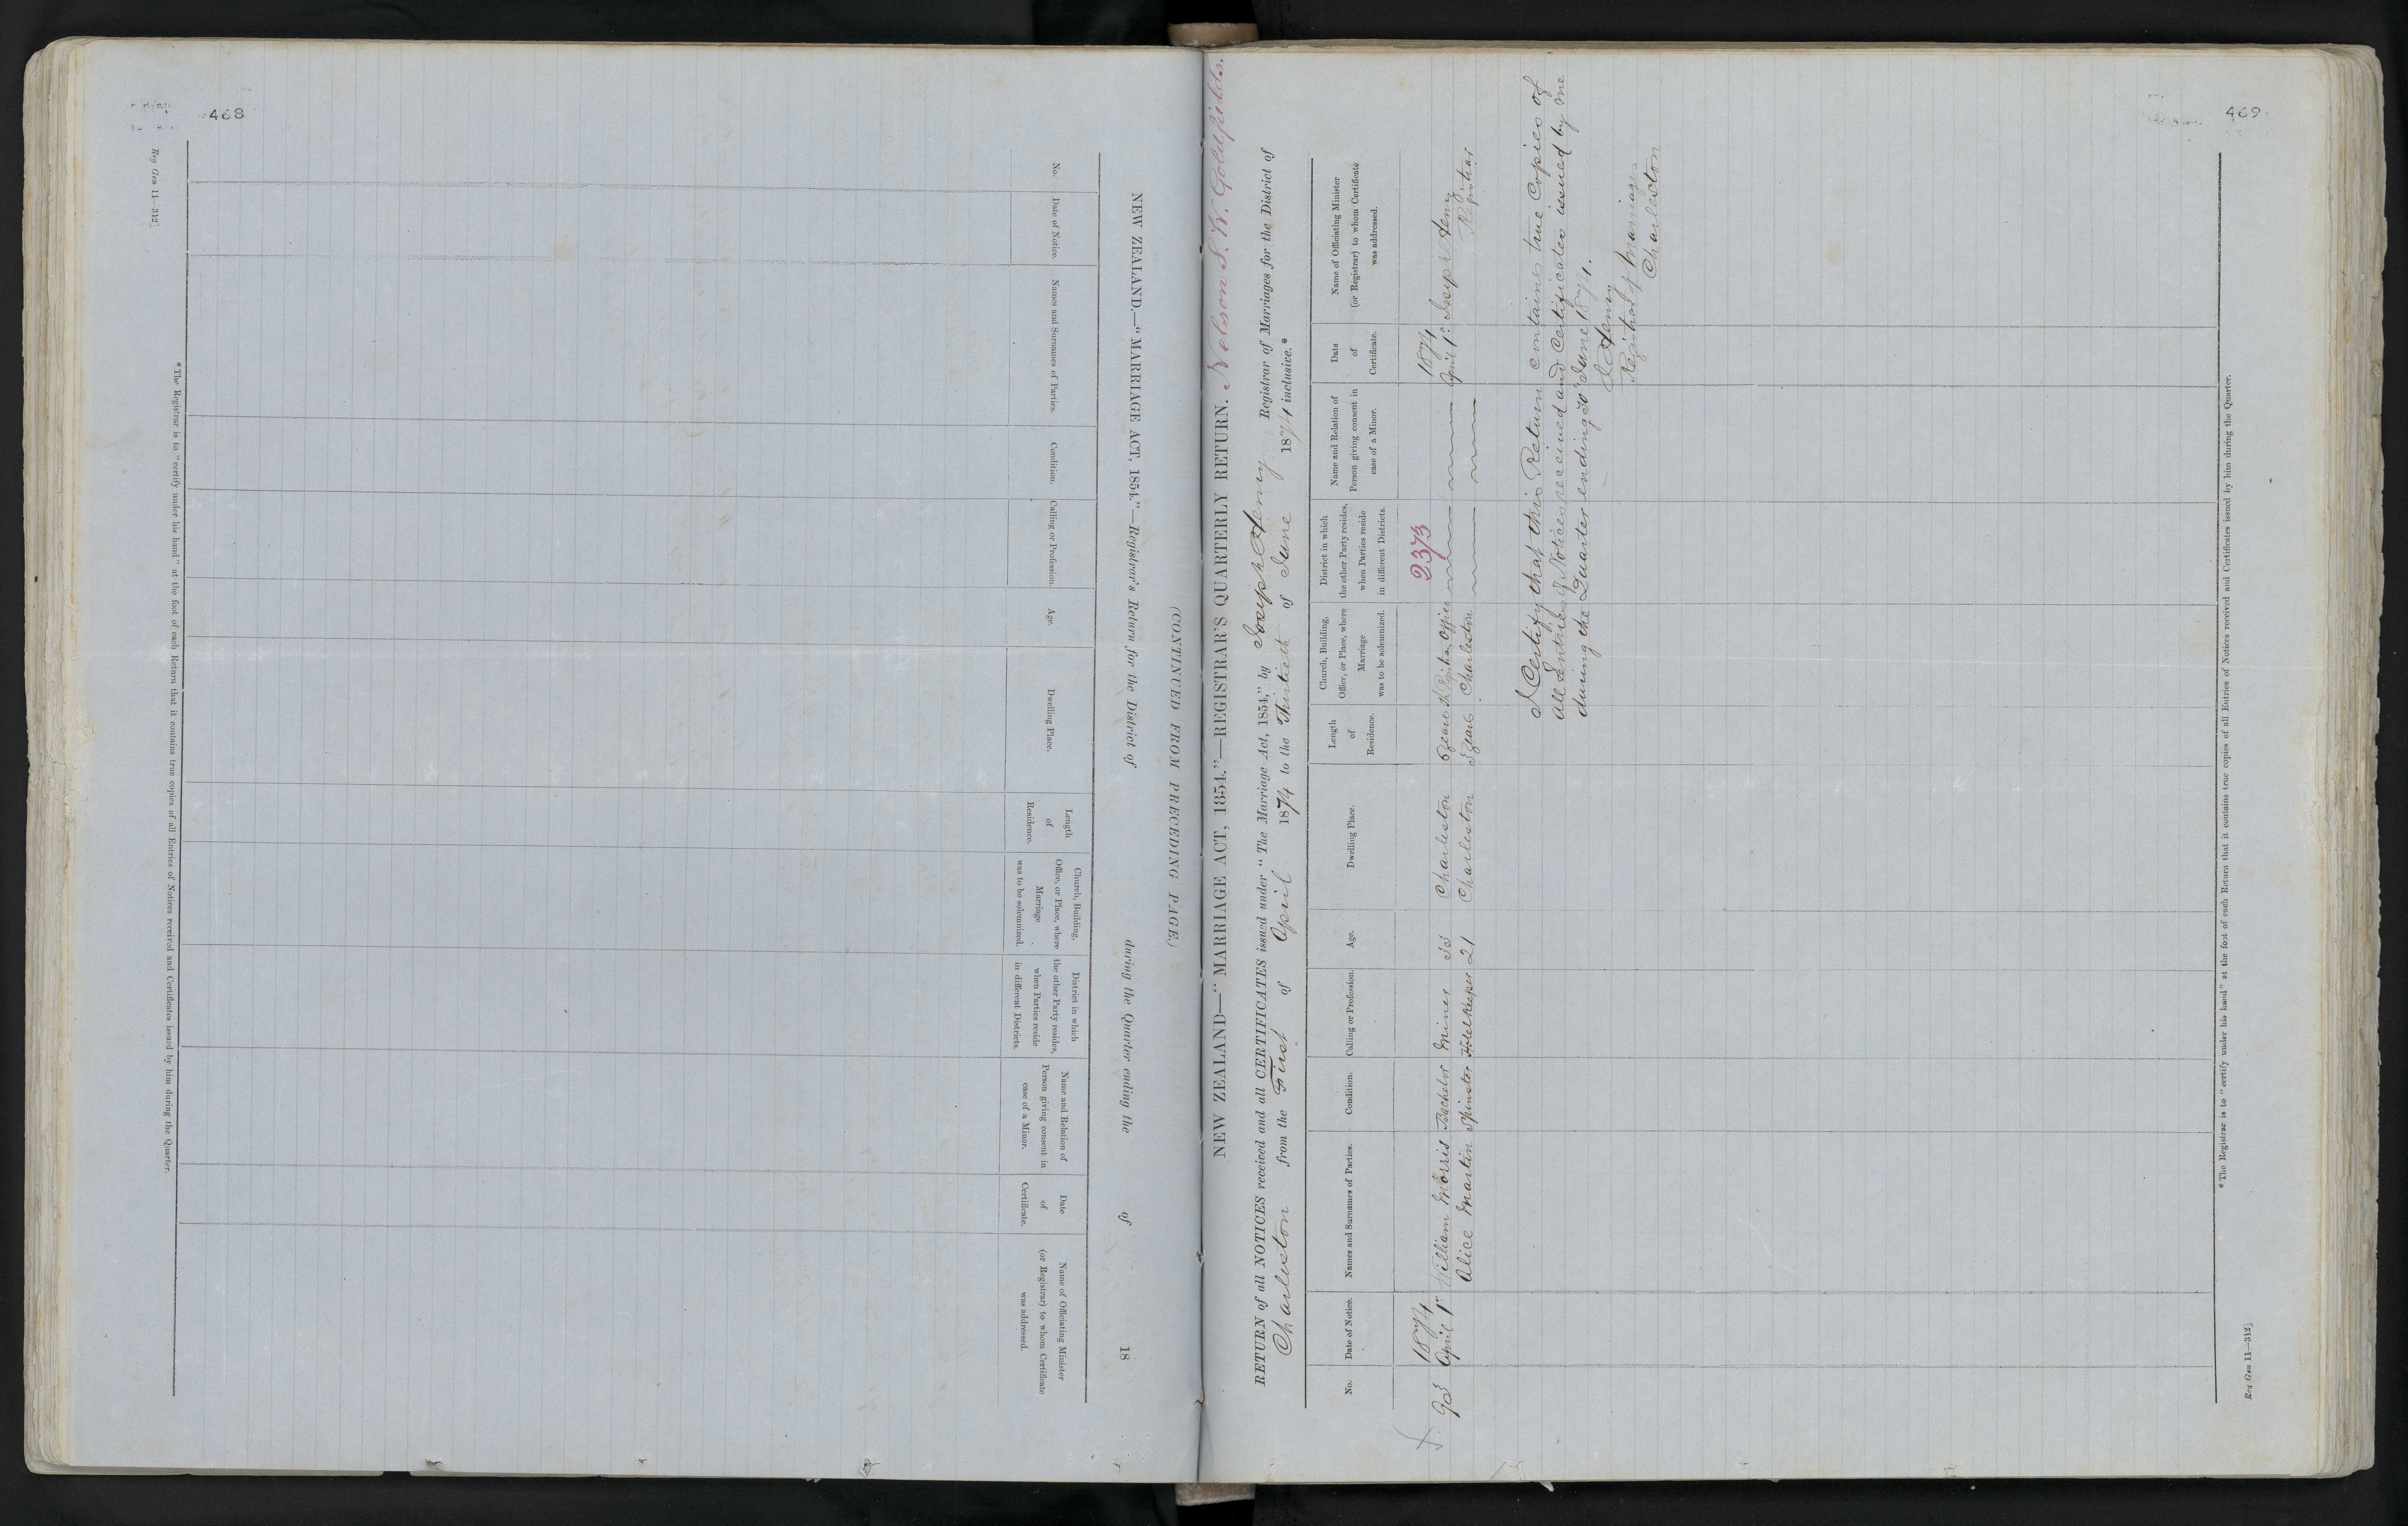 468
Reg Gen 11—312]
NEW ZEALAND.—"MARRIAGE ACT, 1854."—Registrar's Return for the District of during the Quarter ending the of 18
(CONTINUED FROM PRECEDING PAGE.)
No.
Date of Notice.
Names and Surnames of Parties.
Condition.
Calling or Profession.
Age.
Dwelling Place.
Length
of
Residence.
Church, Building,
Office, or Place, where
Marriage
was to be solemnized.
District in which
the other Party resides,
when Parties reside
in different Districts.
Name and Relation of
Person giving consent in
case of a Minor.
Date
of
Certificate.
Name of Officiating Minister
(or Registrar) to whom Certificate
was addressed.
* The Registrar is to "certify under his hand" at the foot of each Return that it contains true copies of all Entries of Notices received and Certificates issued by him during the Quarter.
469
NEW ZEALAND—"MARRIAGE ACT, 1854."—REGISTRAR'S QUARTERLY RETURN. Nelson S. W. Goldfields.
RETURN of all NOTICES received and all CERTIFICATES issued under "The Marriage Act, 1854," by Joseph Henry Registrar of Marriages for the District of
Charleston from the First of April 1874 to the Thirtieth of June 1874 inclusive.*
No.
Date of Notice.
Names and Surnames of Parties.
Condition.
Calling or Profession.
Age.
Dwelling Place.
Length
of
Residence.
Church, Building,
Office, or Place, where
Marriage
was to be solemnized.
District in which
the other Party resides,
when Parties reside
in different Districts.
Name and Relation of
Person giving consent in
case of a Minor.
Date
of
Certificate.
Name of Officiating Minister
(or Registrar) to whom Certificate
was addressed.
1874 2373 1874
April 1 William Morris Bachelor Miner Charleston 6 years Office April 1 Joseph Henry
Alice Martin Spinster Hotelkeeper 21 Charleston years Charleston Registrar
I Certify that this Return contains true Copies of
all Entries of Notices received and Certificates issued by me
during the Quarter ending 30 June 1874.
J Henry
Registrar of Marriages
Charleston
* The Registrar is to "certify under his hand" at the foot of each Return that it contains true copies of all Entries of Notices received and Certificates issued by him during the Quarter.
Reg Gen 11—312]